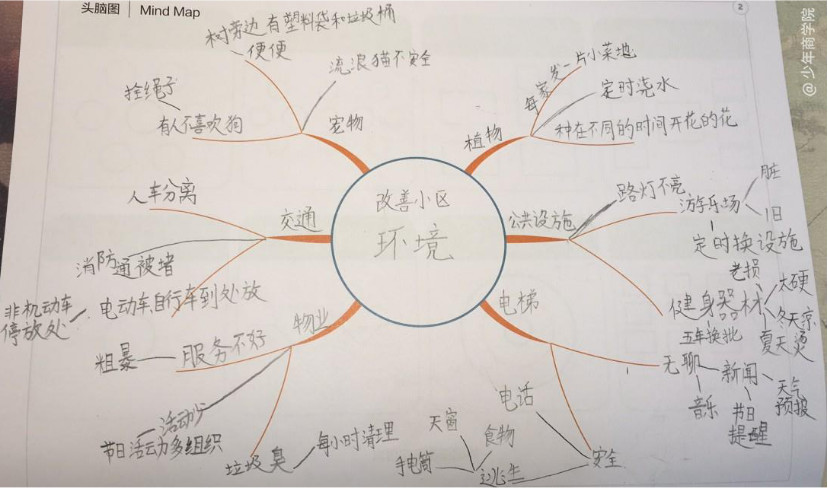 头脑图 | Mind Map
2
@少年商学院
改善小区
环境
宠物
树旁边有塑料袋和垃圾桶
便便
流浪猫不安全
拴绳子
有人不喜吹狗
植物
每家发一片小菜地
定时浇水
种在不同的时间开花的花
交通
人车分离
消防通被堵
电动车,自行车到处放
非机动车
停放处
公共设施
路灯不亮
游乐场
脏
旧
定时换设施
健身器材
老损
太硬
冬天凉
夏天烫
五年换批
物业
服务不好
粗暴
活动少
节日活动多组织
垃圾臭
每小时清理
电梯
无聊
新闻
天气
预报
节日
提醒
音乐
安全
电话
逃生
天窗
食物
手电筒